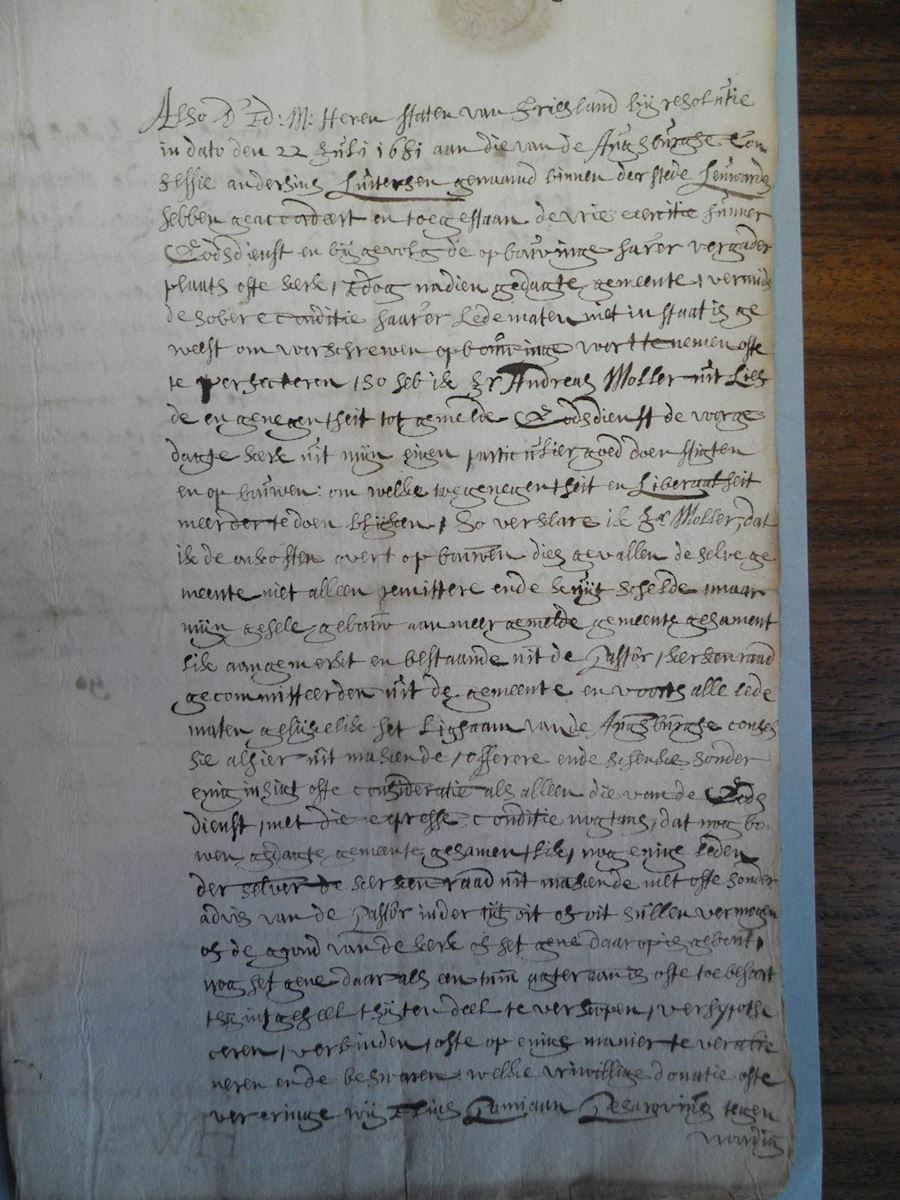 Also d' Ed: M: Heren staten van Friesland bij resolutie
in dato den 22 Juli 1681 aan die van de Augsburghse Con
fessie andersins Luitersen genaamd binnen der stede Leuwarde
hebben geaccordeert en toegestaan de vrie exercitie hunner
Godsdienst en bijgevolg de opbouwinge harer vergader
plaats ofte kerk, Edog nadien gedagte gemeente, vermids
de sobere conditie haarer Ledematen niet in staat is ge
weest om vorschrewen opbouwinge voort te nemen ofte
te persecteren, so heb ik Hr Andreas Moller uit Lief
de en genegentheit tot gemelde Godsdienst de vorge
dagte kerk uit mijn eigen particulier goed doen stigten
en opbouwen: om welke toegenegentheit en Liberaalheit
meerder te doen blijken, so verklare ik Hr Moller, dat
ik de onkosten over't opbouwen dies gevallen deselve ge
meente niet alleen remittere ende kwijt schelde, maar
mijn gehele gebouw aan meergemelde gemeente gesament
lik aangemerkt en bestaande uit de Pastor, kerkenraad
gecommitteerden uit de gemeente en voorts alle lede
maten gelijkelik het Lighaam van de Augsburghse confes
sie alhier uitmakende, offerere ende schenke sonder
enig insigt ofte consideratie als alleen die van de Gods
dienst, met die expresse conditie nogtans, dat nog bo
wen gedagte gemeente gesamentlik, nog enige Leden
der selver de kerkenraad uitmakende met ofte sonder
advis van de Pastor inder tijt oit of oit sullen vermogen
of de grond van de kerk of het gene daarop is gebout,
nog het gene daar als een tuin agter aan is ofte toebehoort
t'sij int geheel t'sij ten deel te verkopen, verhypothe
ceren, verbinden, ofte op enige manier te veralie
neren ende beswaren: welke vriwillige donatie ofte
vereringe wij Elias Pomiaan Pesarovius tegen
wordig